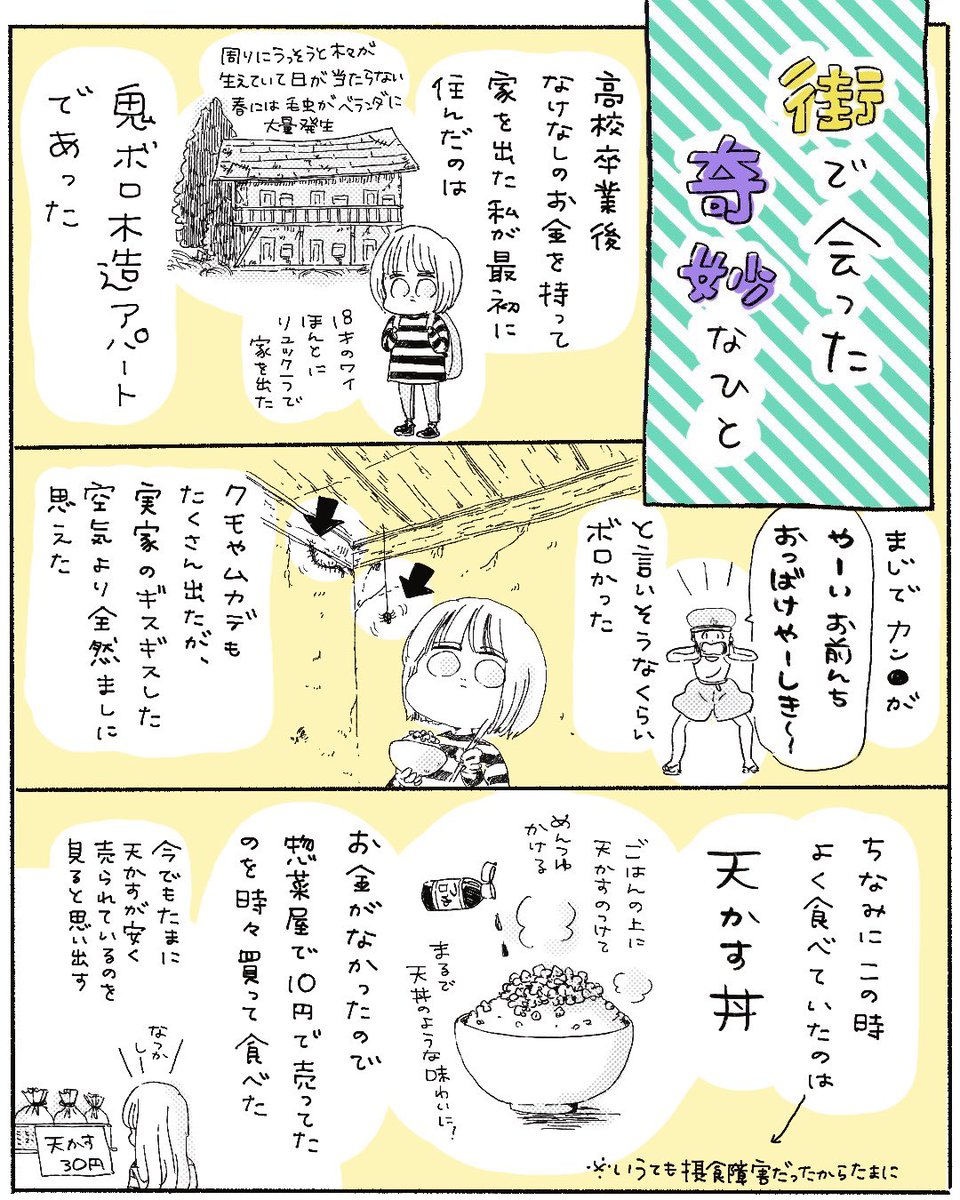 街で会った
奇妙なひと
高校卒業後
なけなしのお金を持って
家を出た私が最初に
住んだのは
周りにうっそうと木々が
生えていて日が当たらない
春には毛虫がベランダに
大量発生
18才のワイ
ほんとに
リュック一つで
家を出た
鬼ボロ木造アパート
であった
まじでカン●が
やーいお前んち
おっばけやーしき〜〜
と言いそうなくらい
ボロかった
クモやムカデも
たくさん出たが、
実家のギスギスした
空気より全然ましに
思えた
ちなみにこの時
よく食べていたのは
※いうても摂食障害だったからたまに
天かす丼
ごはんの上に
天かすのっけて
めんつゆ
かける
つゆ
まるで
天丼のような味わいに！
お金がなかったので
惣菜屋で10円で売ってた
のを時々買って食べた
今でもたまに
天かすが安く
売られているのを
見ると思い出す
なつかし
天かす
30円